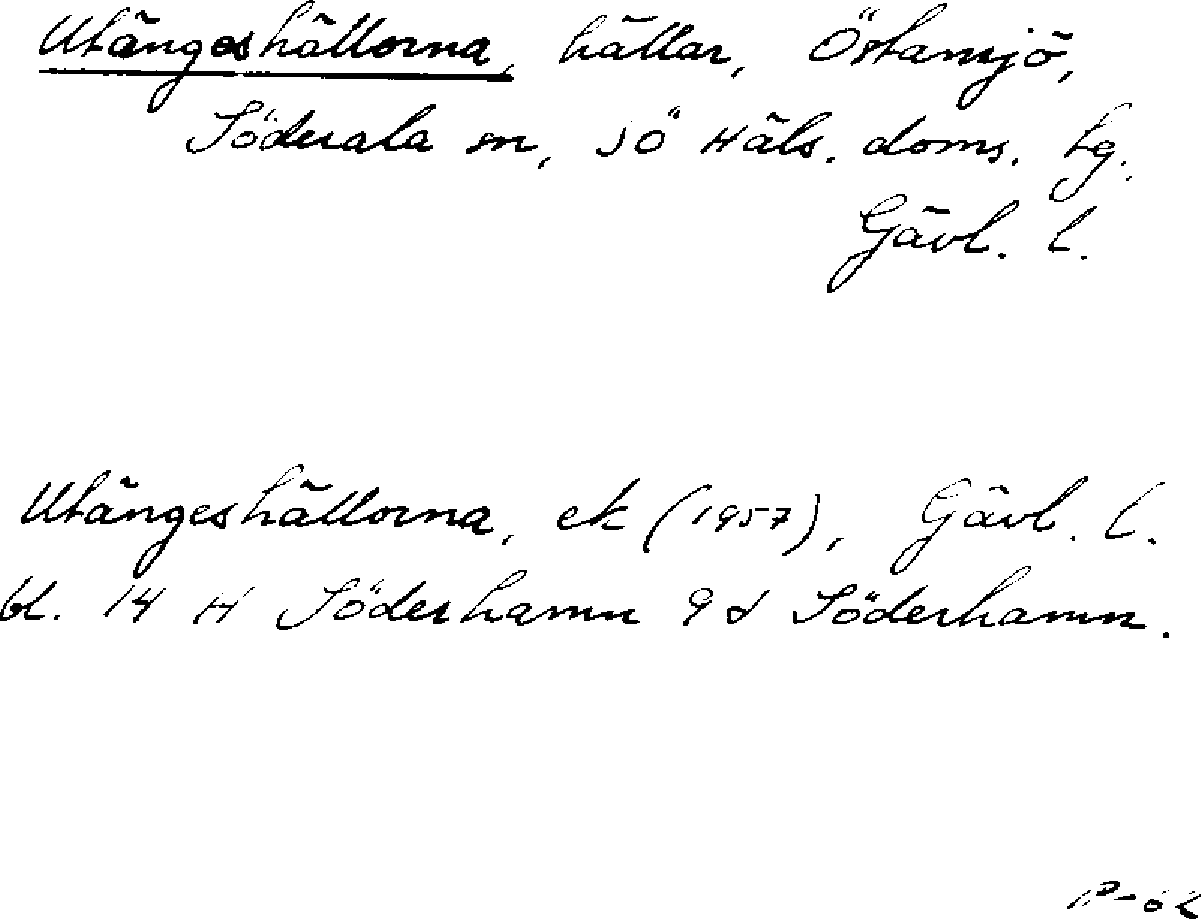 Utängeshällorna, hällar, Östansjö,
Söderala sn, Sö Häls. doms. tg.,
Gävl. l.
Utängeshällorna, ek (1957), Gävl. l.
bl. 14 H Söderhamn 9 d Söderhamn.